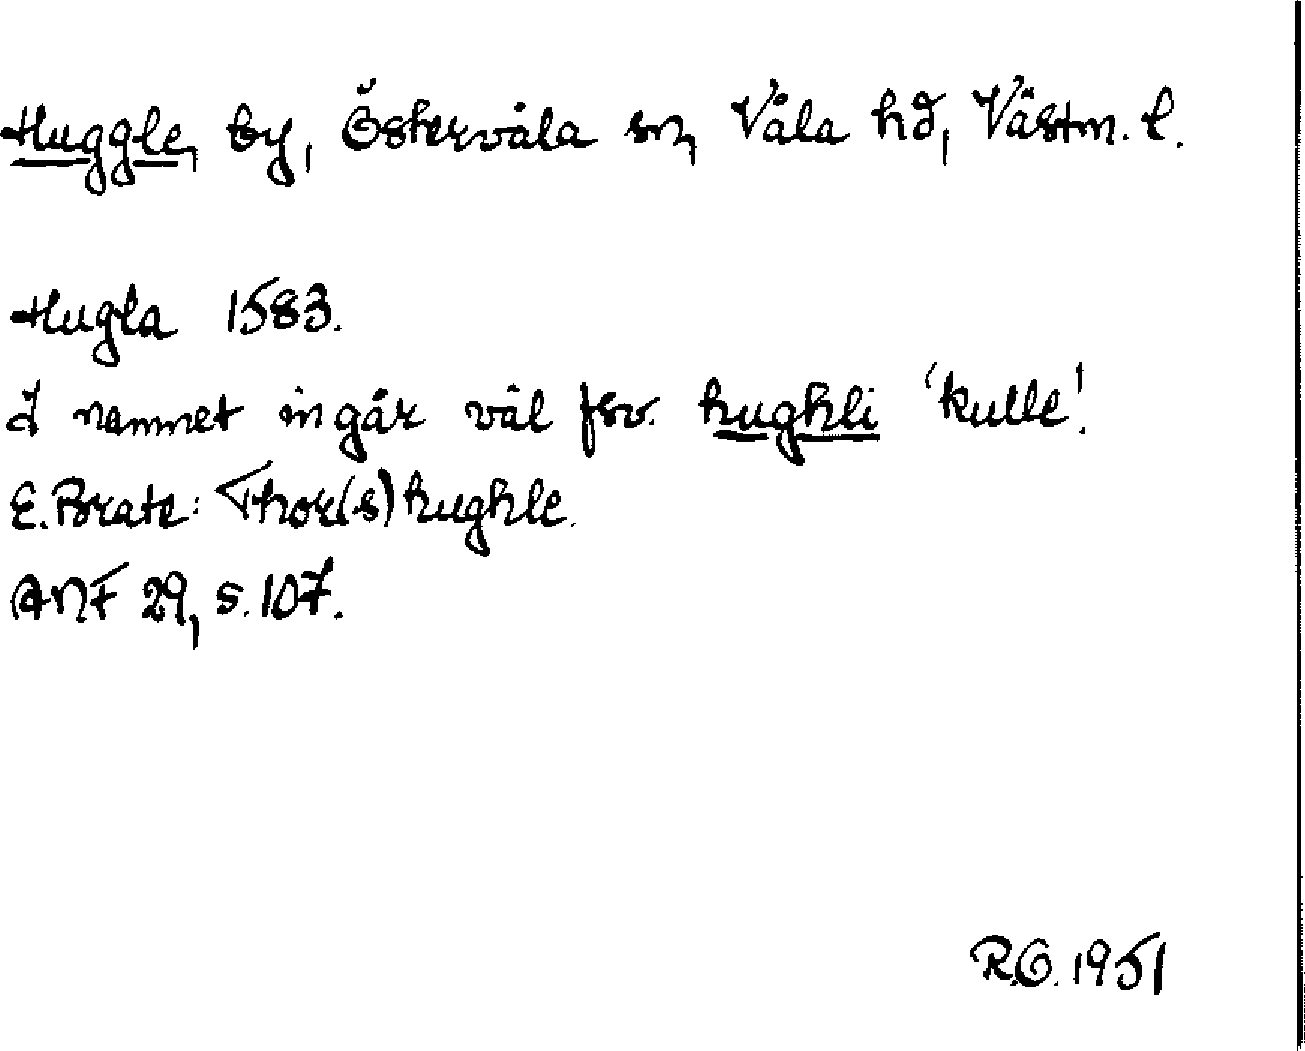 Huggle, by, Östervåla sn, Våla hd, Västm. l.
Hugla 1583.
I namnet ingår väl fsv. hughli 'kulle'.
E. Brate: Thor(s)hughle.
ANF 29, s. 107.
R.O. 1951